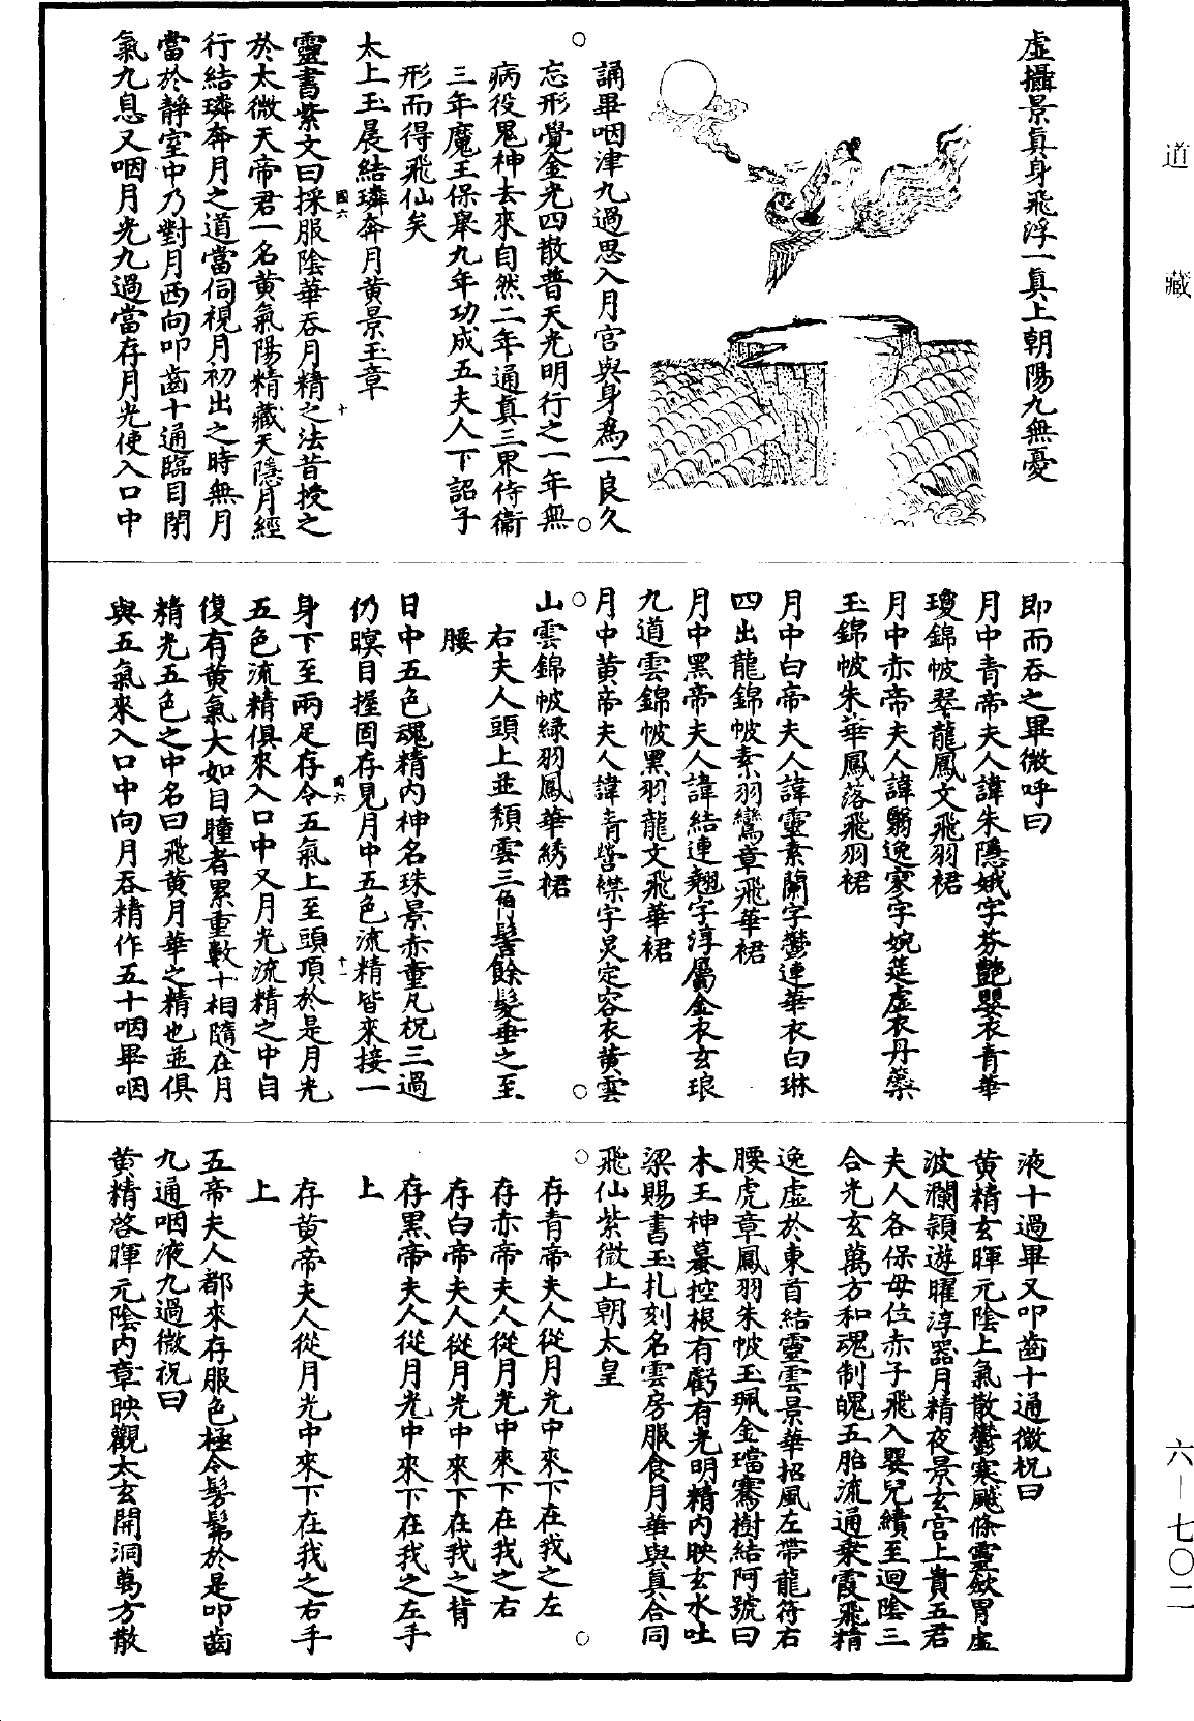 道藏
虛攝景真身飛浮一真上朝陽九無憂
誦畢咽津九過思入月宮與身為一良久
忘形覺金光四散普天光明行之一年無
病役鬼神去來自然二年通真三界侍衛
三年魔王保舉九年功成五夫人下詔子
形而得飛仙矣
太上玉晨結璘奔月黃景玉章
靈書紫文曰採服陰華吞月精之法昔授之
國六
十
於太微天帝君一名黃氣陽精藏天隱月經
行結璘奔月之道當伺視月初出之時無月
當於靜室中乃對月西向叩齒十通臨目閉
氣九息又咽月光九過當存月光使入口中
即而吞之畢微呼曰
月中青帝夫人諱朱隱娥字芬艷嬰衣青華
瓊錦帔翠龍鳳文飛羽裙
月中赤帝夫人諱翳逸寥字婉筵虛衣丹蘂
玉錦帔朱華鳳落飛羽裙
月中白帝夫人諱靈素蘭字鬱連華衣白琳
四出龍錦帔素羽鸞章飛華裙
月中黑帝夫人諱結連翹字淳屬金衣玄琅
九道雲錦帔黑羽龍文飛華裙
月中黃帝夫人諱青營襟字炅定容衣黃雲
山雲錦帔綠羽鳳華綉裙
右夫人頭上並頹雲三角髻餘髮垂之至
腰
日中五色魂精內神名珠景赤童凡祝三過
仍瞑目握固存見月中五色流精皆來接一
身下至兩足存令五氣上至頭頂於是月光
國六
十一
五色流精俱來入口中又月光流精之中自
復有黃氣大如目瞳者累重數十相隨在月
精光五色之中名曰飛黃月華之精也並俱
與五氣來入口中向月吞精作五十咽畢咽
液十過畢又叩齒十通微祝曰
黃精玄暉元陰上氣散鬱寒飈條靈斂胃虛
波瀾穎遊曜淳器月精夜景玄宮上貴五君
夫人各保母位赤子飛入嬰兒續至迴陰三
合光玄萬方和魂制魄五胎流通乘霞飛精
逸虛於東首結靈雲景華招風左帶龍符右
腰虎章鳳羽朱帔玉珮金璫騫樹結阿號曰
木王神蟇控根有虧有光明精內映玄水吐
梁賜書玉札刻名雲房服食月華與真合同
飛仙紫微上朝太皇
存青帝夫人從月光中來下在我之左
存赤帝夫人從月光中來下在我之右
存白帝夫人從月光中來下在我之背
存黑帝夫人從月光中來下在我之左手
上
存黃帝夫人從月光中來下在我之右手
上
五帝夫人都來存服色極令髣髴於是叩齒
九通咽液九過微祝曰
黃精啓暉元陰內章映觀太玄開洞萬方散
六—七〇二